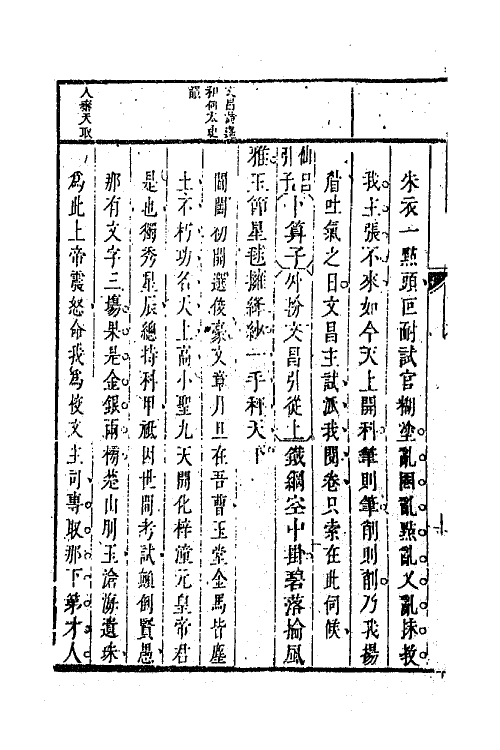 朱衣一點頭叵耐試官糊塗亂圈亂點亂乂亂抹教
我主張不來如今天上開科筆則筆削則削乃我揚
眉吐氣之日文昌主試派我閱卷只索在此伺候
仙呂引子
卜算子
外扮文昌引從上
鐵網空中掛碧落掄風
雅玉節星毬擁絳紗一手秤天下
閶闔初開選俊豪文章月旦在吾曹玉堂金馬皆塵
土不朽功名天上高小聖九天開化梓潼元皇帝君
是也獨秀星辰總持科甲祗因世間考試顛倒賢愚
那有文字三場果是金銀兩榜荊山刖玉滄海遺珠
為此上帝震怒命我為校文主司專取那下第才人
文昌詩
和何太史
韻
人棄天取